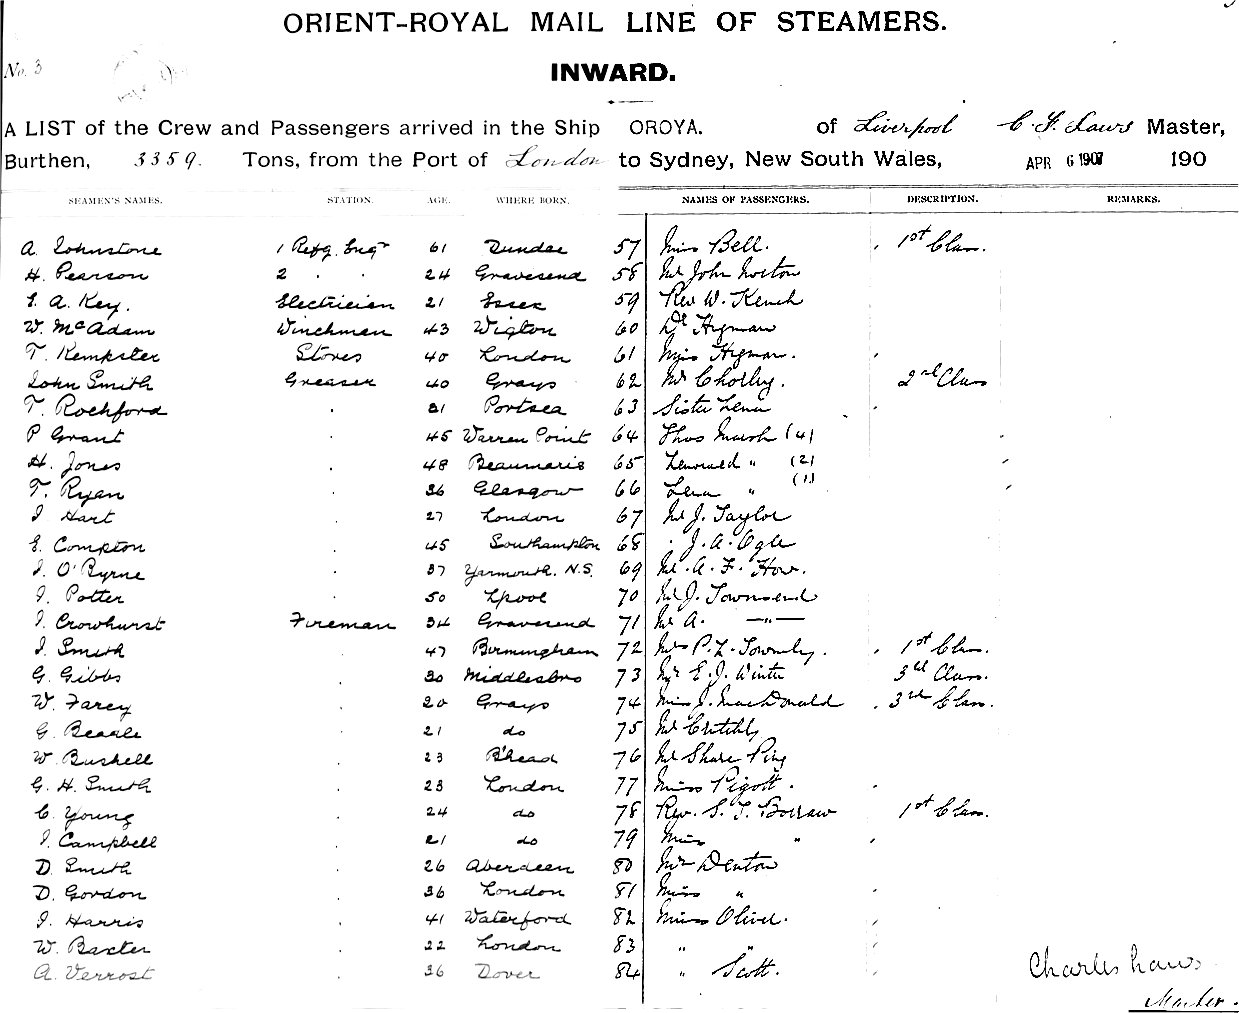 ORIENT-ROYAL MAIL LINE OF STEAMERS.
No. 3
INWARD.
A LIST of the Crew and Passengers arrived in the Ship OROYA. of Liverpool C. F. Laws Master,
Burthen, 3359. Tons, from the Port of London to Sydney, New South Wales, APR 6 1907 190
SEAMEN'S NAMES. STATION. AGE. WHERE BORN. NAMES OF PASSENGERS. DESCRIPTION. REMARKS.
A. Johnstone 1 Refg. Engr 61 Dundee 57 Miss Bell. 1st Class.
H. Pearson 2 . . 24 Gravesend 58 Mr John Norton
E. A. Key. Electrician 21 Essex 59 Rev W. Kench
W. McAdam Winchman 43 Wigton 60 Dr Hyman
T. Kempster Stores 40 London 61 Miss Hyman.
John Smith Greaser 40 Grays 62 Mr Chorley. 2nd Class
T. Rochford . 31 Portsea 63 Sister Lena
P Grant . 45 Warren Point 64 Thos Marsh (4)
H. Jones . 48 Beaumaris 65 " (2)
T. Ryan . 36 Glasgow 66 Lena " (1)
J. Hart . 27 London 67 Mr J. Taylor
E. Compton . 45 Southampton 68 . J. A. Ogle
J. O'Byrne . 37 Yarmouth. N.S. 69 Mr. A. F. How.
J. Potter . 50 Lpool 70 Mr J. Townsend
J. Crowhurst Fireman 34 Gravesend 71 Mr A. —"—
J. Smith . 47 Birmingham 72 Mrs P. L. Townley. 1st Class.
G. Gibbs . 30 Middlesbro 73 Mr E. J. Winter 3rd Class.
W. Farey . 20 Grays 74 Miss J. MacDonald 3rd Class.
G. Beagle . 21 do 75 Mr Critchly
W. Bushell . 23 B'head 76 Mr Share Ping
G. H. Smith . 23 London 77 Miss Pigott.
C. Young . 24 do 78 Rev. S. J. Borraw 1st Class.
J. Campbell . 21 do 79 Miss "
D. Smith . 26 Aberdeen 80 Mrs Denton
D. Gordon . 36 London 81 Miss "
J. Harris . 41 Waterford 82 Miss Oliver.
W. Baxter . 22 London 83 " "
A. Verrost . 36 Dover 84 " Scott.
Charles Laws
Master.